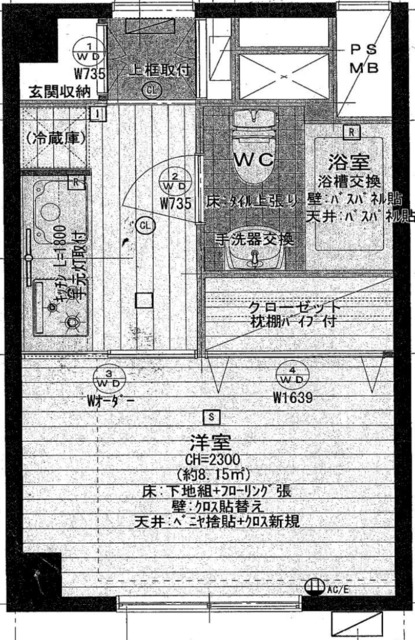 1
WD
W735
玄関収納
上框取付
CL
PS
MB
(冷蔵庫)
1
R
2
WD
W735
CL
WC
床:タイル上張り
手洗器交換
R
浴室
浴槽交換
壁:バスパネル貼
天井:バスパネル貼
キッチンL=1800
手元灯取付
クローゼット
枕棚パイプ付
3
WD
Wオーダー
4
WD
W1639
S
洋室
CH=2300
(約8.15㎡)
床:下地組+フローリング張
壁:クロス貼替え
天井:ベニヤ捨貼+クロス新規
AC/E